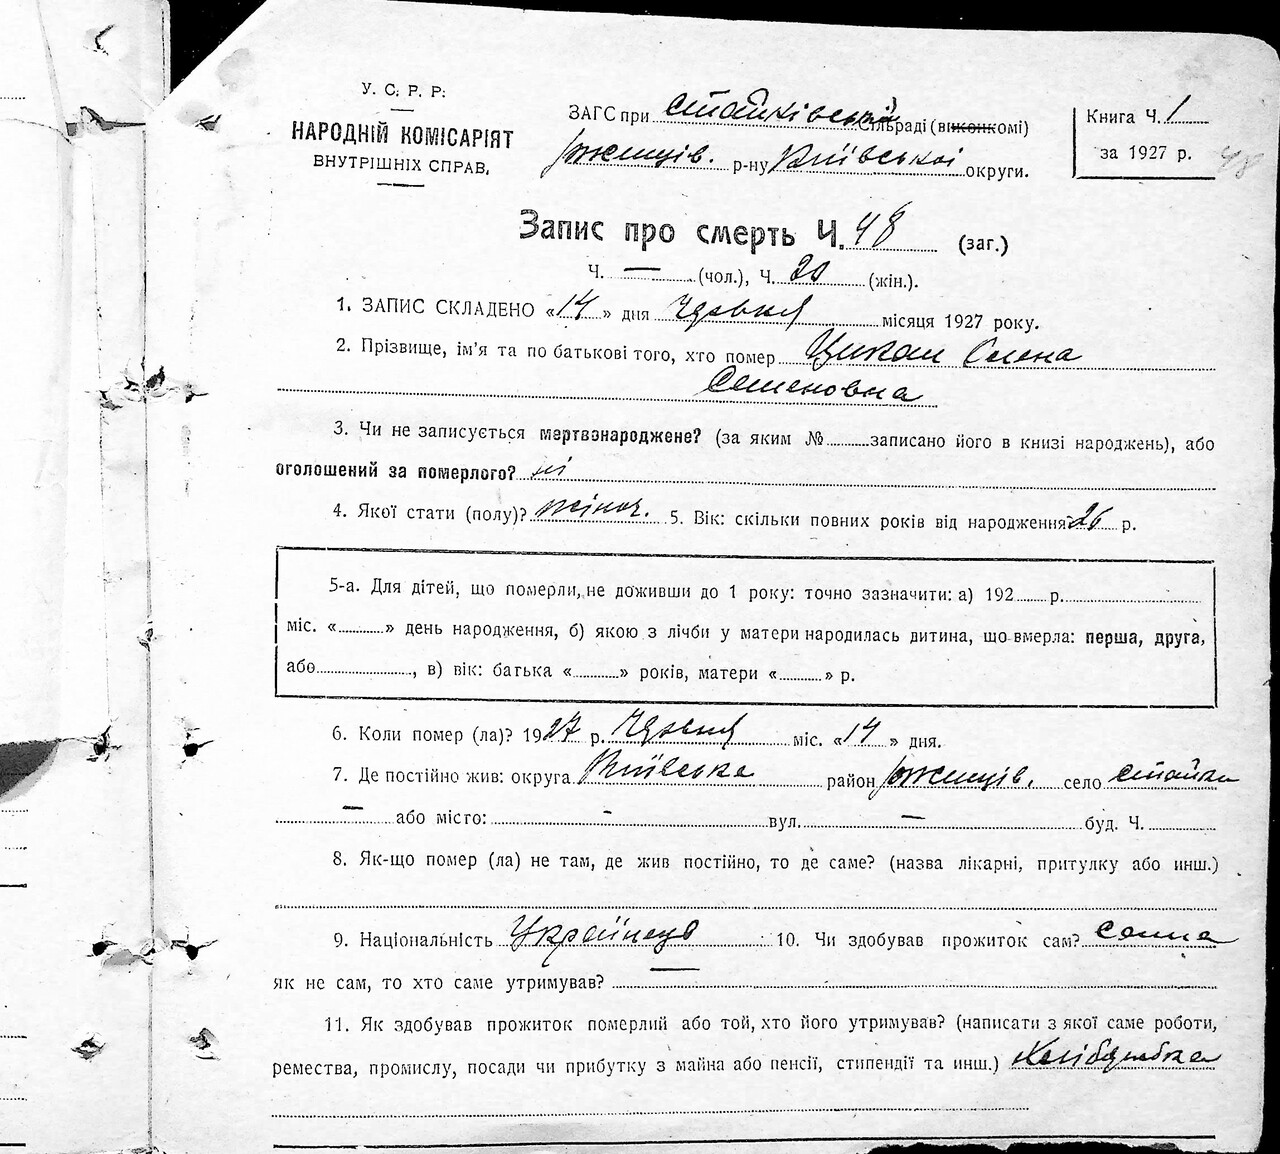 У. С. Р. Р.
НАРОДНІЙ КОМІСАРІЯТ
ВНУТРІШНІХ СПРАВ.
ЗАГС при Стайківській Сільраді (виконкомі)
Ржищів. р-ну Київської округи.
Книга Ч. 1
за 1927 р.
48
Запис про смерть Ч. 48 (заг.)
Ч. — (чол.), Ч. 20 (жін.).
1. ЗАПИС СКЛАДЕНО «14» дня місяця 1927 року.
2. Прізвище, ім'я та по батькові того, хто помер Цикал Олена
Семеновна
3. Чи не записується мертвонароджене? (за яким № записано його в книзі народжень), або
оголошений за померлого? ні
4. Якої стати (полу)? жіноч. 5. Вік: скільки повних років від народження 26 р.
5-а. Для дітей, що померли, не доживши до 1 року: точно зазначити: а) 192 р.
міс. « » день народження, б) якою з лічби у матери народилась дитина, що вмерла: перша, друга,
або , в) вік: батька « » років, матери « » р.
6. Коли помер (ла)? 1927 р. міс. «14» дня.
7. Де постійно жив: округа Київська район Ржищів. село Стайки
— або місто: - вул. — буд. Ч.
8. Як-що помер (ла) не там, де жив постійно, то де саме? (назва лікарні, притулку або инш.)
9. Національність Українець 10. Чи здобував прожиток сам? сама
як не сам, то хто саме утримував? —
11. Як здобував прожиток померлий або той, хто його утримував? (написати з якої саме роботи,
ремества, промислу, посади чи прибутку з майна або пенсії, стипендії та инш.) Хліборобка